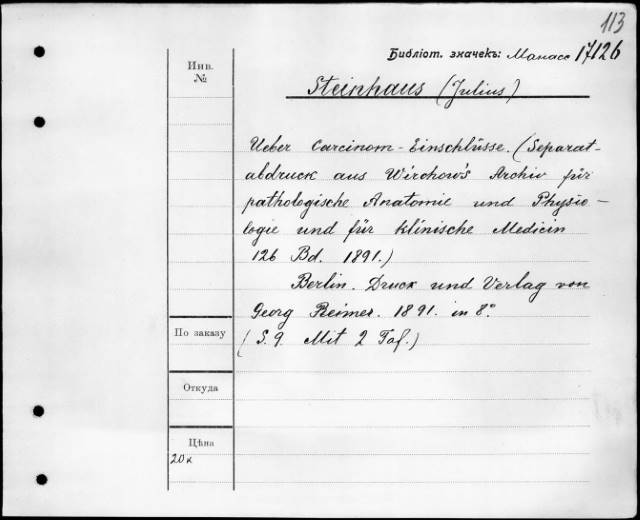 113
Библіот. значекъ: Манасс 17126
Инв.
№
Steinhaus (Julius)
Ueber Carcinom-Einschlüsse. (Separat-
abdruck aus Wirchow's Archiv für
pathologische Anatomie und Physio-
logie und für klinische Medicin
126 Bd. 1891.)
Berlin. Druck und Verlag von
Georg Reimer. 1891. in 8°.
(S. 9. Mit 2 Taf.)
По заказу
Откуда
Цѣна
20к